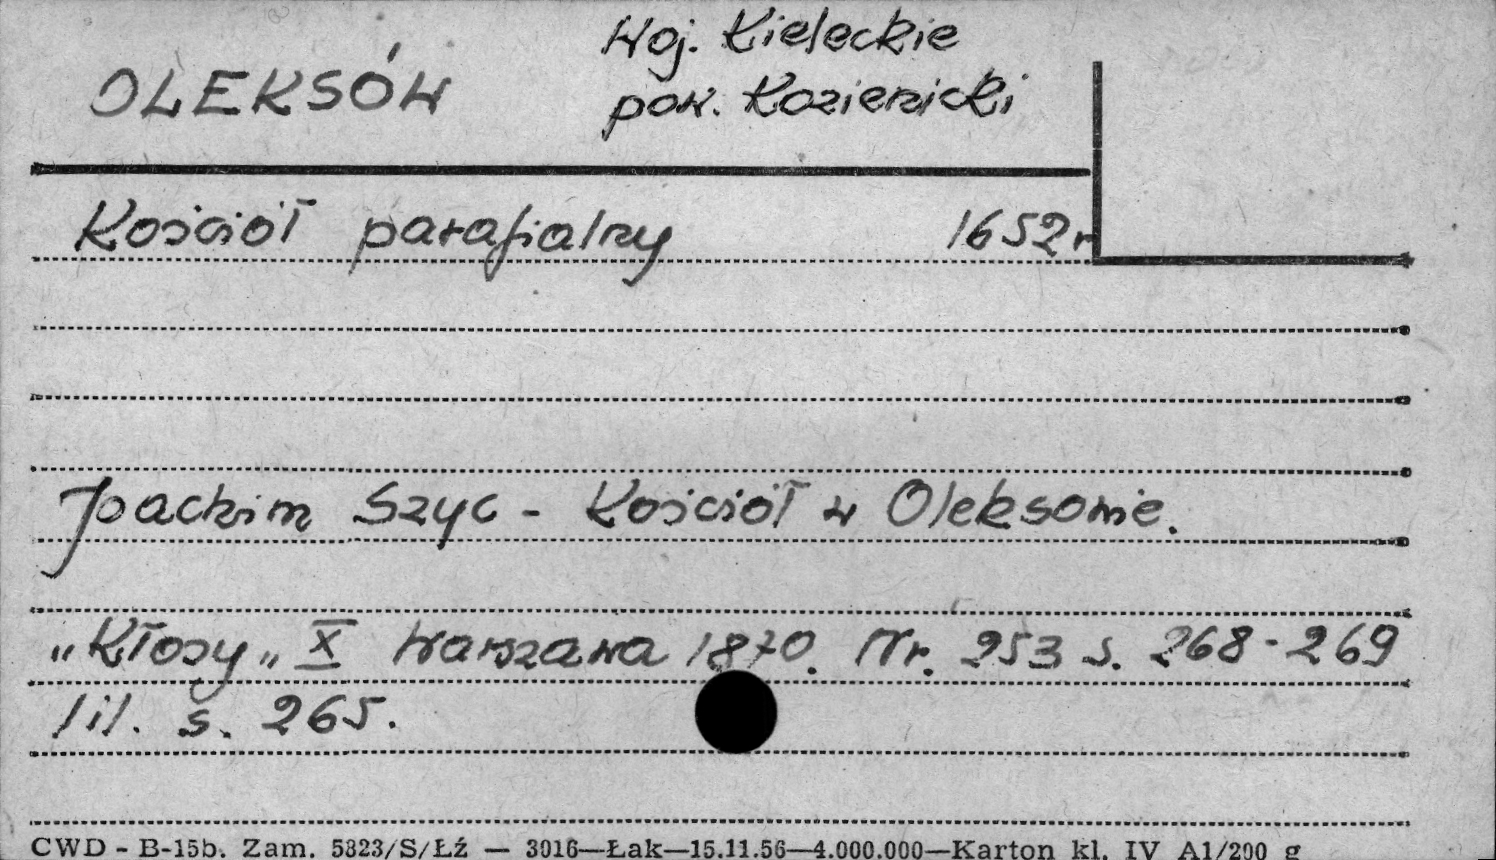 Woj. Kieleckie
OLEKSÓW
pow. Kozienicki
Kościół parafialny 1652 r
Joachim Szyc - Kościół w Oleksowie.
„Kłosy„ X Warszawa 1870. Nr. 253 s. 268-269
lil. s. 265.
CWD - B-15b. Zam. 5823/S/Łź — 3016—Łak—15.11.56—4.000.000—Karton kl. IV A1/200 g